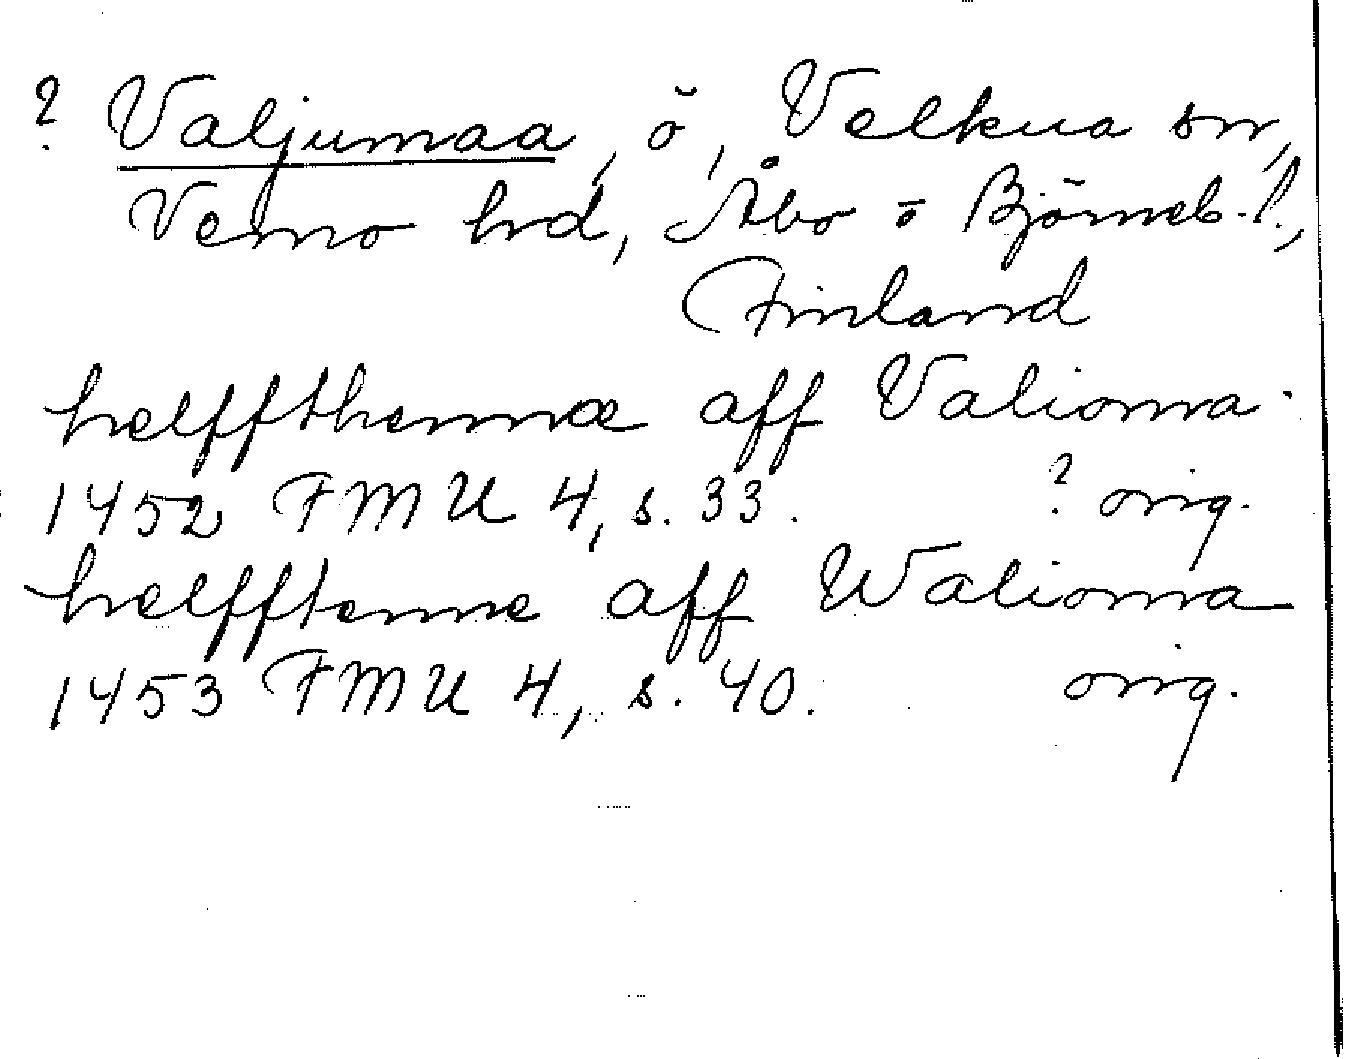 ? Valjumaa, ö, Velkua sn,
Vemo hd, Åbo o Björneb. l.,
Finland
helffthennæ aff Valioma.
1452 FMU 4, s. 33. ? orig.
helfftenne aff Walioma
1453 FMU 4, s. 40. orig.